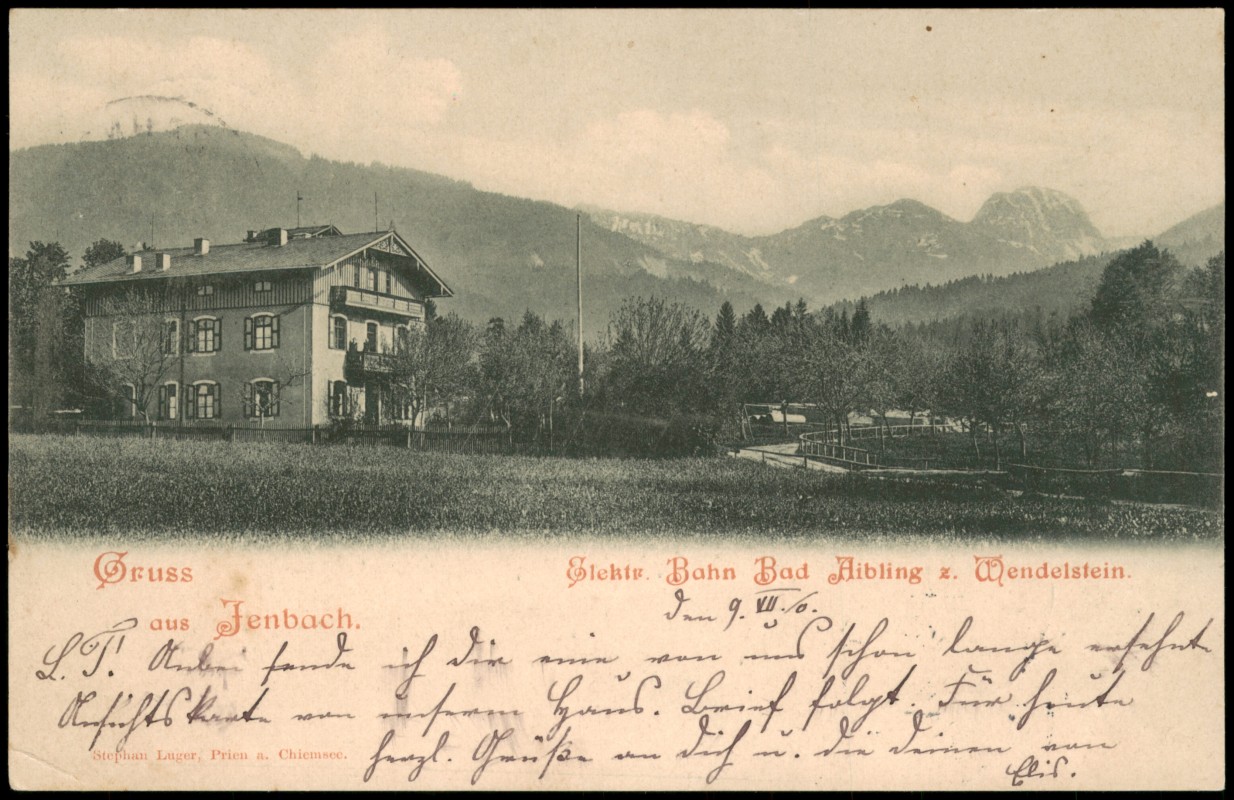 Gruss
aus Jenbach.
Elektr. Bahn Bad Aibling z. Wendelstein.
Den 9. VII. /0.
L. T. Anbei sende ich dir eine von uns schon lange ersehnte
Ansichtskarte von unserm Haus. Brief folgt. Für heute
herzl. Grüße an dich u. die deinen von
Elis.
Stephan Luger, Prien a. Chiemsee.